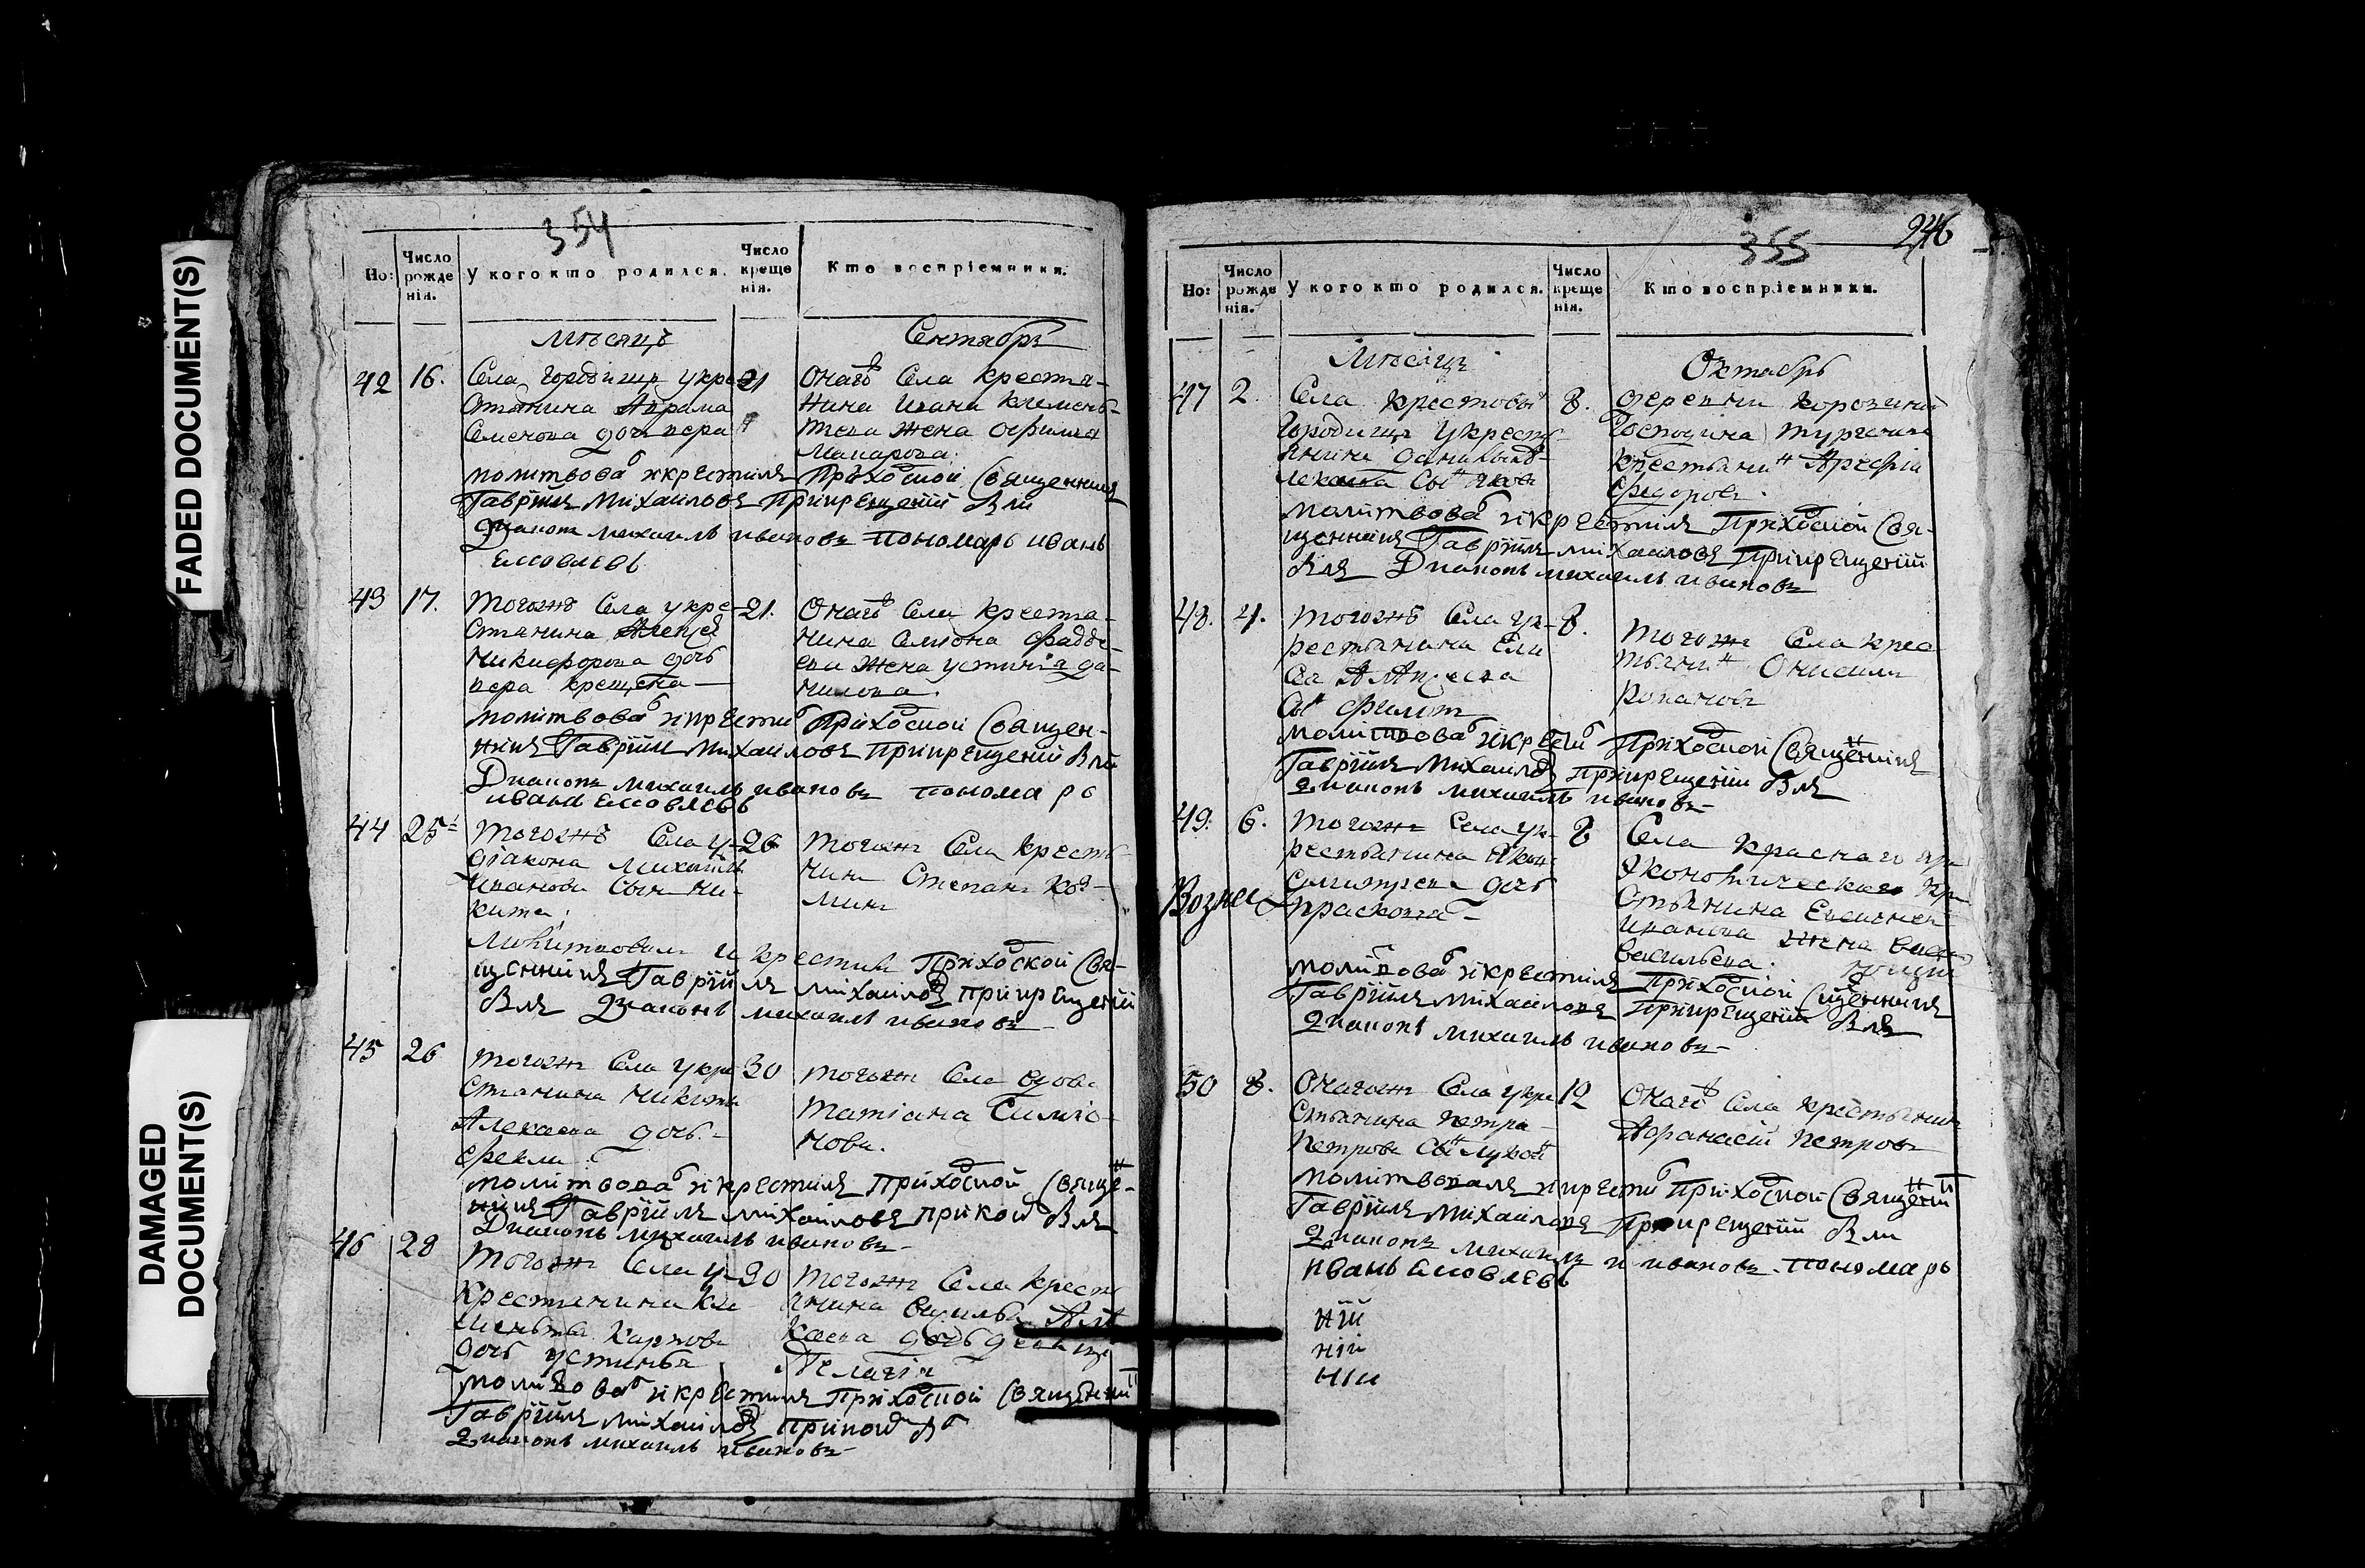 FADED DOCUMENT(S)
DAMAGED
DOCUMENT(S)
354
Но:
Число рожде нія.
У кого кто родился.
Число креще нія.
Кто воспріемники.
Мѣсяцъ
Сентябрь
42 16.
Села Городища укре-
стянина Аврама
Семенова дочь вера
21
Онаго Села крестя-
нина Ивана Клеменъ-
тева жена Офимия
Макарова.
молитвовалъ и крестилъ Приходской Священникъ
Гаврiилъ Михаиловъ При крещении были
Диаконъ михаилъ ивановъ пономарь иванъ
Ековлевъ
43 17.
тогожъ Села укре-
стянина Алексея
Никифорова дочь
вера крещена
21.
Онаго Села кресття-
нина Симиона Фадде-
ева жена устиния да-
нилова.
молитвовалъ и крестилъ Приходской Священ-
никъ Гаврiилъ Михаиловъ При крещении были
Диаконъ михаилъ ивановъ пономарь
иванъ Ековлевъ
44 25
тогожъ Села у
діакона Михаила
Иванова Сынъ Ни-
кита
26
тогожъ Села крестья-
нинъ Степанъ Коз-
минъ
Молитвовалъ и крестилъ Приходской Свя-
щенникъ Гаврiилъ Михаиловъ При крещении
былъ Диаконъ михаилъ ивановъ
45 26
тогожъ Села укре
стянина Никиты
Алексеева дочь
Фекла
30
тогожъ Села вдова
татіана Симіо-
нова.
молитвовалъ и крестилъ Приходской Священ-
никъ Гаврiилъ Михаиловъ При коемъ былъ
Диаконъ михаилъ ивановъ
46 28
тогожъ Села у
крестянина Кли
ментья Карпова
дочь устинья
30
тогожъ Села кресть
янина Василья Але
ксеева дочь девица
Пелагія
молитвовалъ и крестилъ Приходской Священникъ
Гаврiилъ Михаиловъ При коемъ былъ
Диаконъ михаилъ ивановъ
246
355
Но:
Число рожде нія.
У кого кто родился.
Число креще нія.
Кто воспріемники.
Мѣсяцъ
Октябрь
47 2.
Села крестовы
Городищъ укресть
янина
Сынъ
8.
деревни
Господина тургенева
крестьянинъ Арефій
Федоровъ
молитвовалъ и крестилъ Приходской Свя-
щенникъ Гаврiилъ Михаиловъ При крещении
былъ Диаконъ михаилъ ивановъ
48. 4.
тогожъ Села ук-
рестьянина Ели
сея
Сынъ Филипъ
8.
тогожъ Села крес
тьянинъ Онисимъ
Романовъ
молитвовалъ и крестилъ Приходской Священникъ
Гаврiилъ Михаиловъ При крещении былъ
Диаконъ михаилъ ивановъ
49. 6.
тогожъ Села ук-
рестьянина Якова
Дмитрева дочь
прасковья
8
Села Краснаго яра
Экономическаго кре
стьянина
Иванова жена
Васильева.
Вознес
молитвовалъ и крестилъ Приходской Священникъ
Гаврiилъ Михаиловъ При крещении былъ
Диаконъ михаилъ ивановъ
50 8.
Онагожъ Села укре
стьянина Петра
Петрова Сынъ Лукой
12
Онаго Села крестьянинъ
Афанасій Петровъ
молитвовалъ и крестилъ Приходской Священникъ
Гаврiилъ Михаиловъ При крещении были
Диаконъ михаилъ ивановъ пономарь
иванъ Ековлевъ